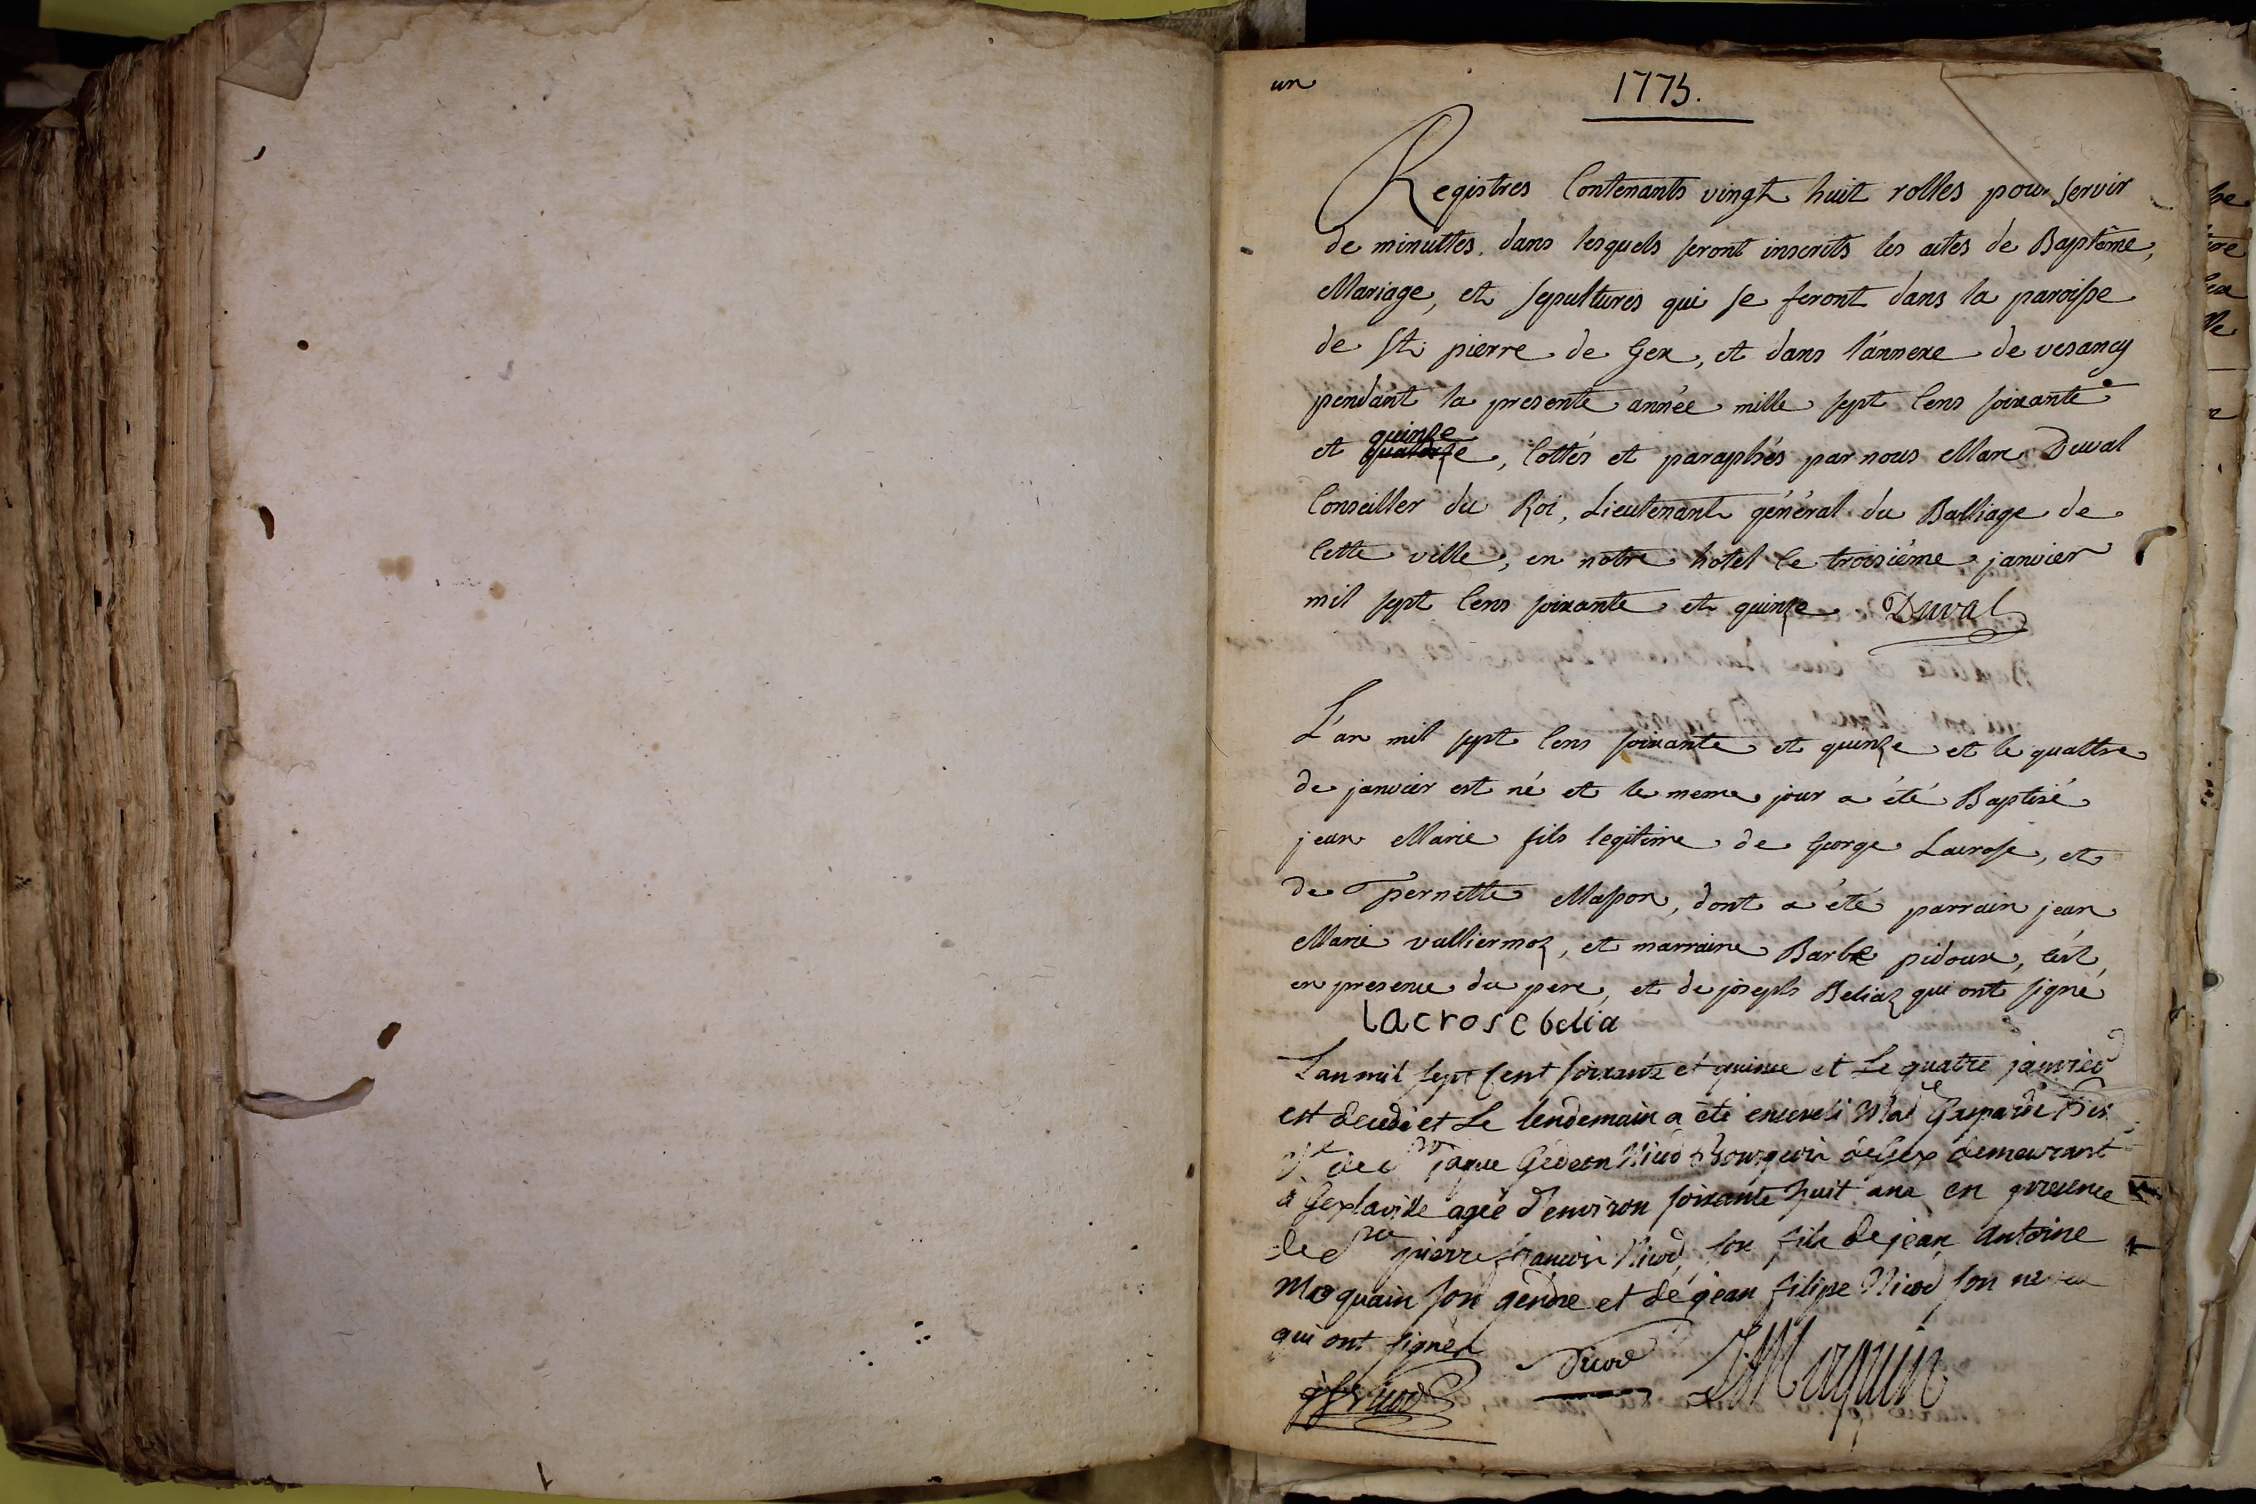 un
1775.
Registres Contenants vingt huit rolles pour servir
de minuttes, dans lesquels seront inscrits les actes de Baptême,
Mariage, et sepultures qui se feront dans la paroisse
de St. pierre de Gex, et dans l'annexe de vesancy
pendant la presente année mille sept Cens soixante
quinze
et quatorze, Cottés et paraphés par nous Marc Duval
Conseiller du Roi, Lieutenant général du Balliage de
Cette ville, en notre hotel le troisiéme janvier
mil sept Cens soixante et quinze Duval
L'an mil sept Cens soixante et quinze et le quattre
de janvier est né et le meme jour a été Baptisé
jean Marie fils legitime de George Lacrosse, et
de pernette Masson, dont a été parrain jean
Marie vulliermoz, et marraine Barbe pidoux,
en presence du pere, et de joseph Beliaz qui ont signé
lacrose belia
L'an mil sept Cent soixante et quinze et Le quatre janvier
est decedé et Le lendemain a été enseveli Gasparde
de jaque Gedeon Nicod Bourgeois de Gex demeurant
à Gex la ville agée d'environ soixante huit ans en presence
de pierre françois Nicod, son fils de jean Antoine
Moquain son gendre et de jean filipe Nicod son neveu
qui ont signés
Nicod